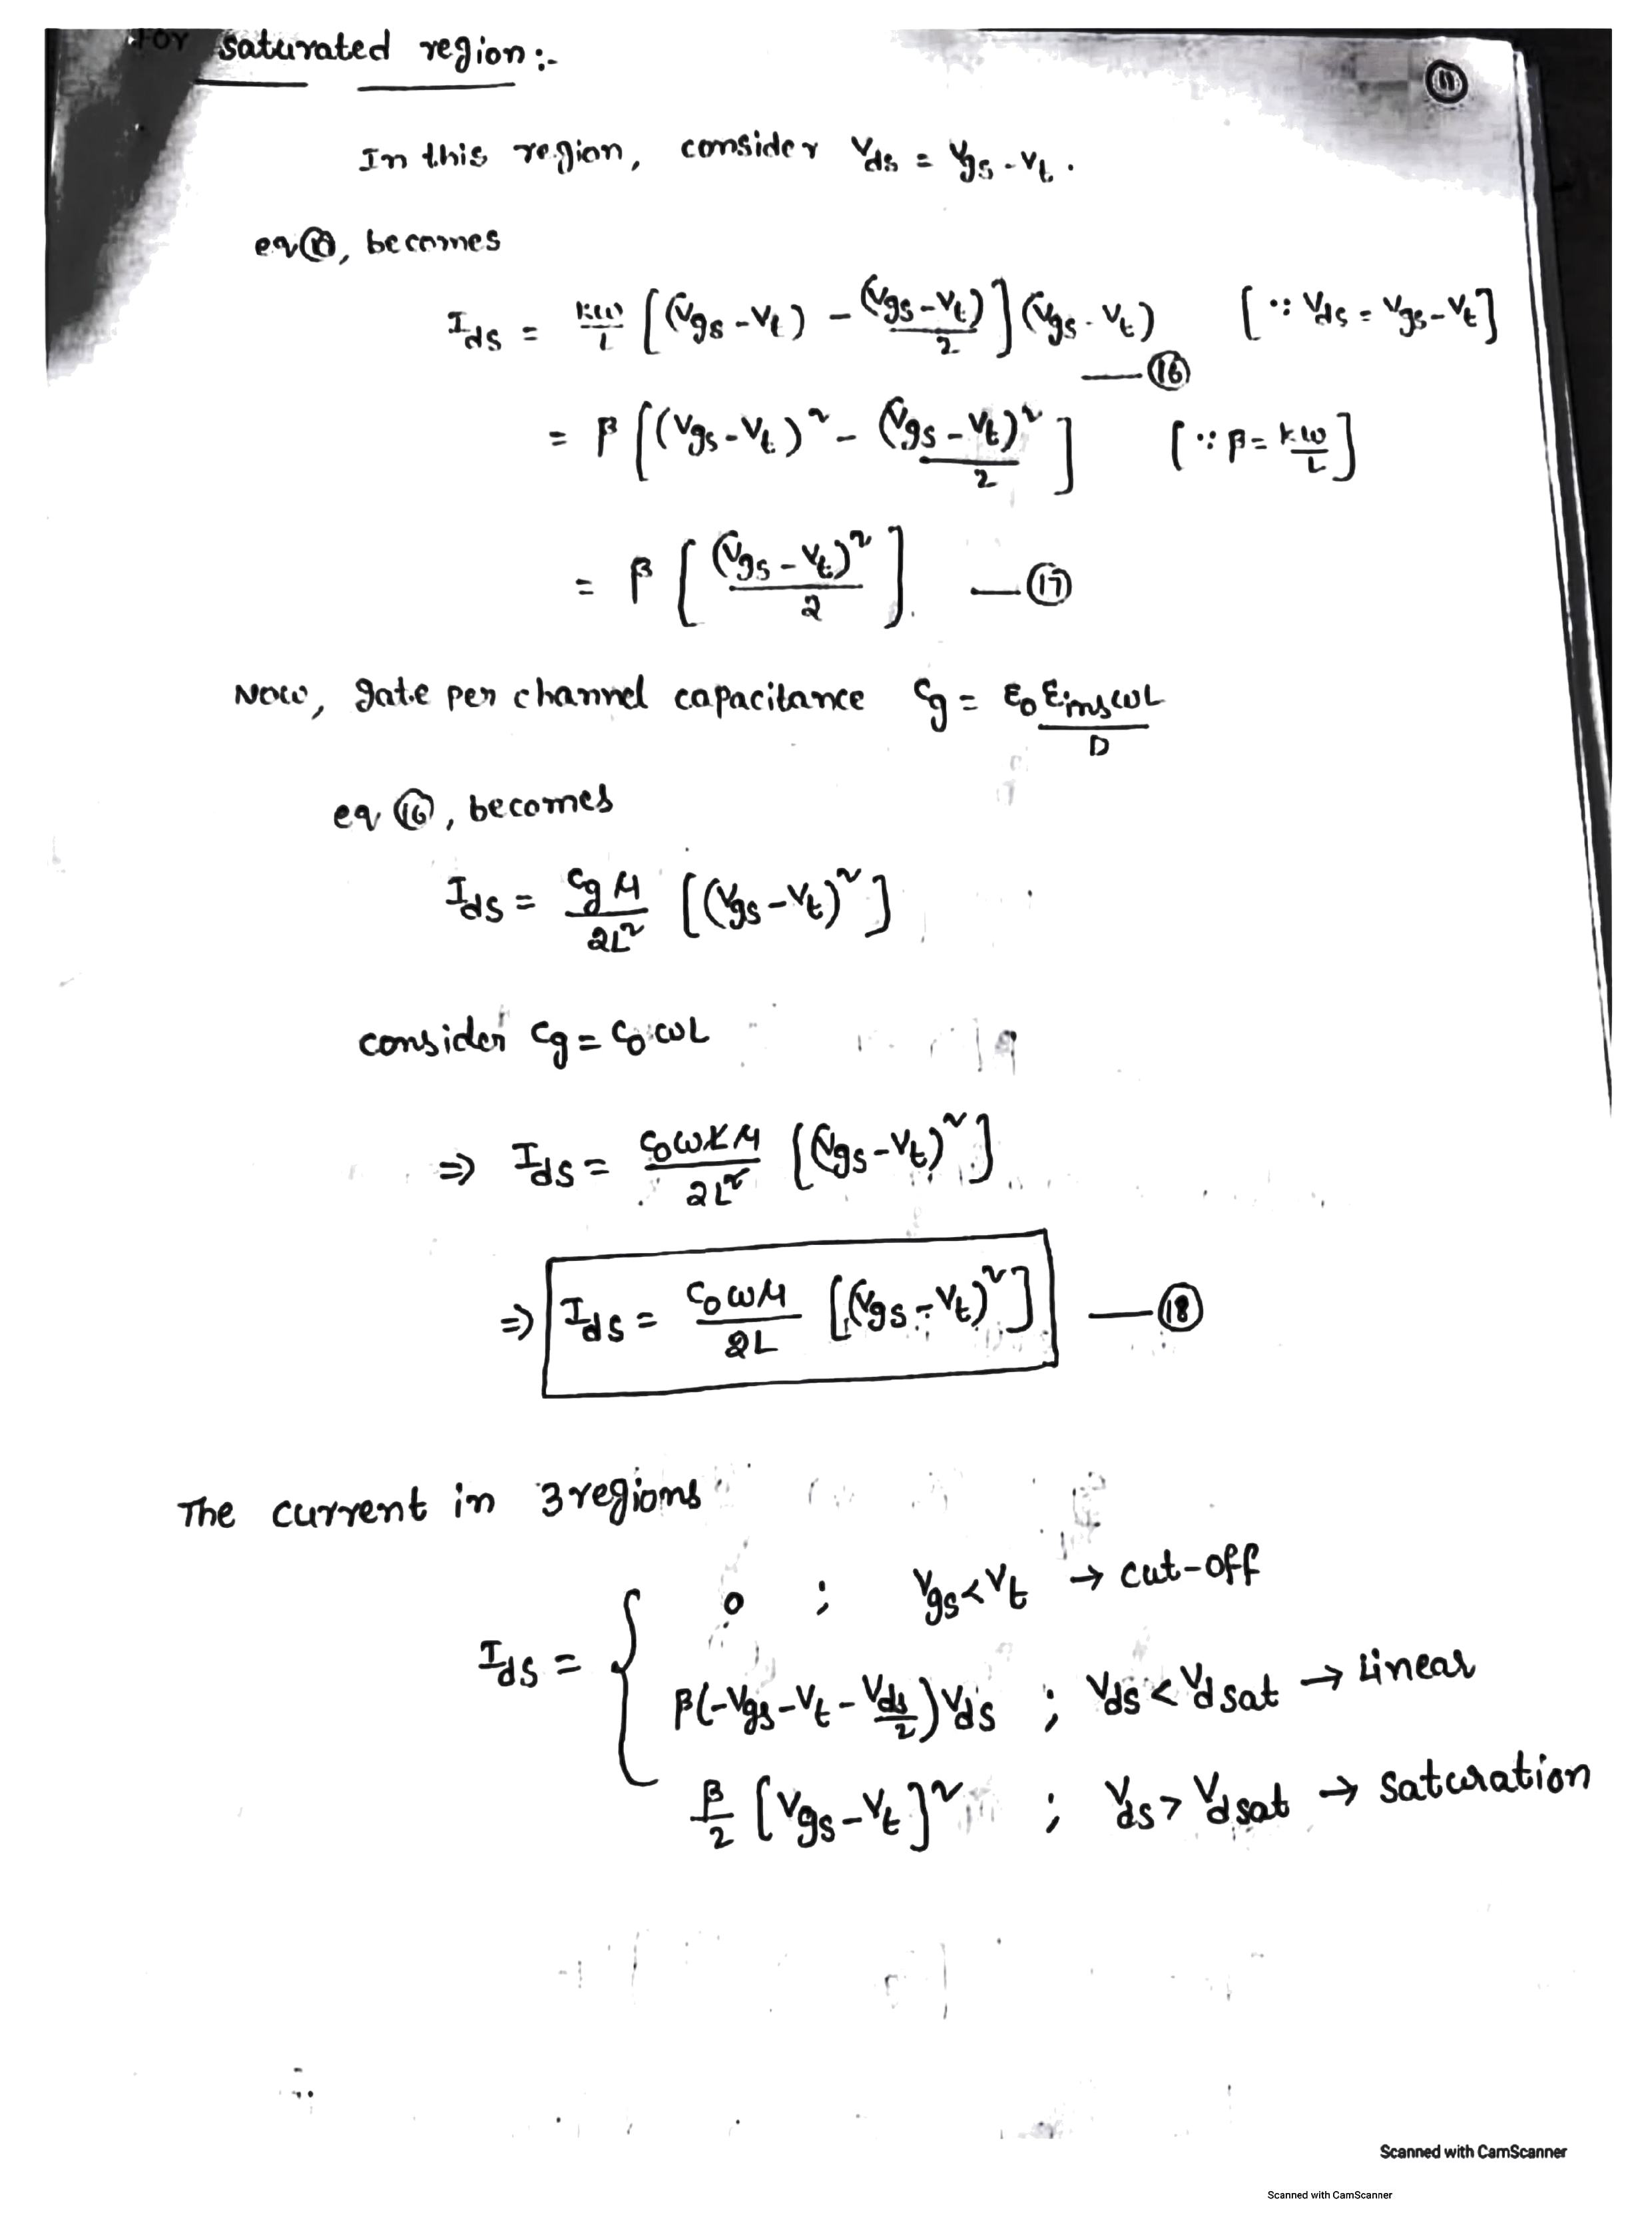 For saturated region:-
11
In this region, consider Vds = Vgs - Vt.
eq 10, becomes
Ids = kω/L [(Vgs - Vt) - (Vgs - Vt)/2] (Vgs - Vt) [∵ Vds = Vgs - Vt]
— 16
= β [(Vgs - Vt)² - (Vgs - Vt)²/2] [∵ β = kω/L]
= β [(Vgs - Vt)²/2] — 17
Now, gate per channel capacitance Cg = ε0 εins ωL/D
eq 16, becomes
Ids = Cg μ/2L² [(Vgs - Vt)²]
consider Cg = C0 ωL
⇒ Ids = C0 ωL μ/2L² [(Vgs - Vt)²]
⇒ Ids = C0 ωμ/2L [(Vgs - Vt)²] — 18
The current in 3 regions
0 ; Vgs < Vt → cut-off
Ids = {
β(-Vgs - Vt - Vds/2) Vds ; Vds < Vdsat → Linear
β/2 [Vgs - Vt]² ; Vds > Vdsat → saturation
Scanned with CamScanner
Scanned with CamScanner